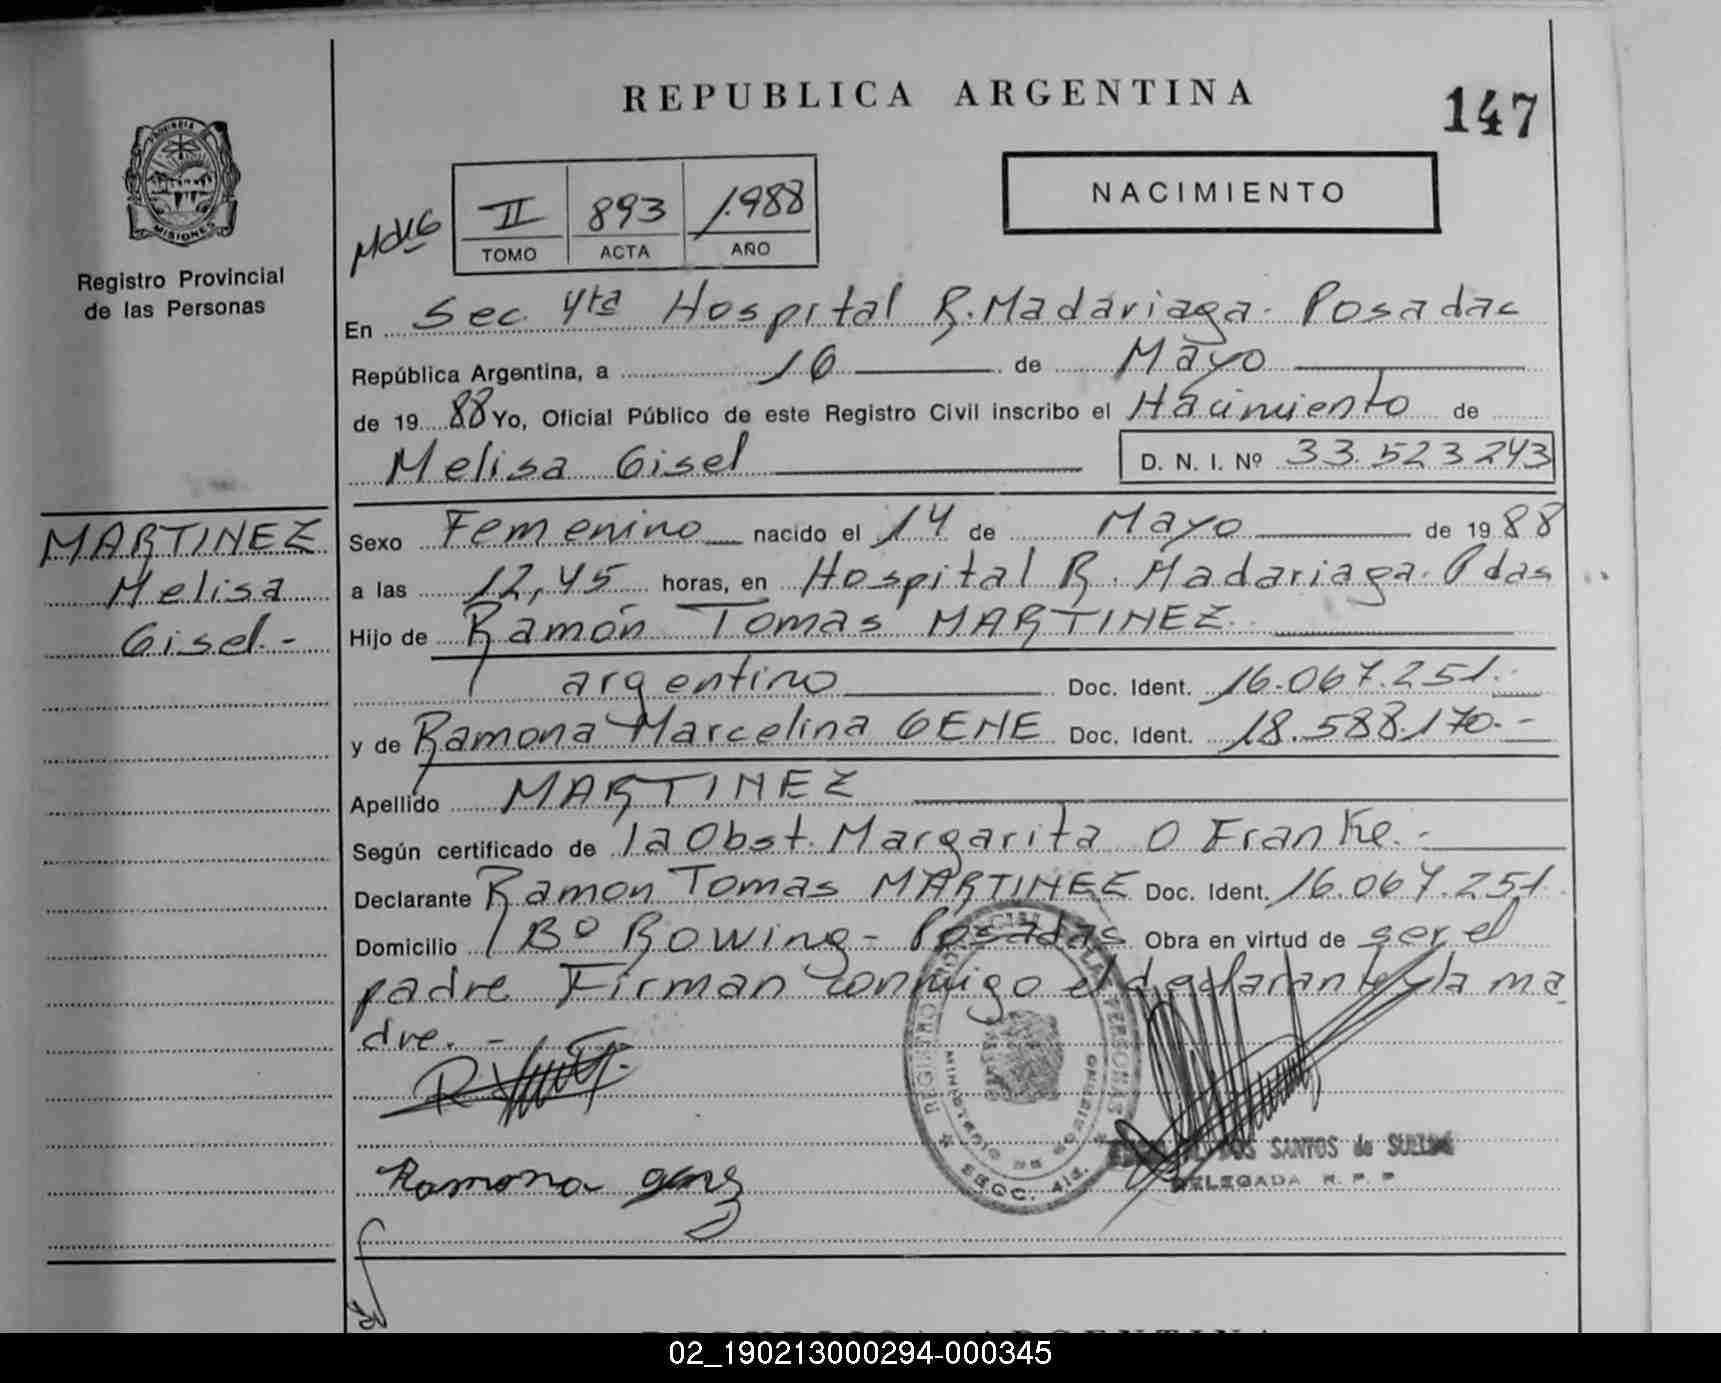 REPUBLICA ARGENTINA
147
PROVINCIA DE MISIONES
Registro Provincial
de las Personas
II 893 1.988
TOMO ACTA AÑO
NACIMIENTO
En Sec. 4ta Hospital R. Madariaga - Posadas
República Argentina, a 16 de Mayo
de 19 88 Yo, Oficial Público de este Registro Civil inscribo el Nacimiento de
Melisa Gisel D. N. I. Nº 33.523.243
MARTINEZ
Melisa
Gisel.-
Sexo Femenino nacido el 14 de Mayo de 19 88
a las 12,45 horas, en Hospital R. Madariaga - Pdas
Hijo de Ramón Tomas MARTINEZ
argentino Doc. Ident. 16.067.251.-
y de Ramona Marcelina GENE Doc. Ident. 18.588.170.-
Apellido MARTINEZ
Según certificado de la Obst. Margarita O Franke.-
Declarante Ramon Tomas MARTINEZ Doc. Ident. 16.067.251.
Domicilio Bº Rowing - Posadas Obra en virtud de ser el
padre Firman conmigo el declarante y la ma
dre.-
REGISTRO PROVINCIAL DE LAS PERSONAS
MINISTERIO DE GOBIERNO
Ramona
SANTOS de
DELEGADA R. P. P
REPUBLICA ARGENTINA
02_190213000294-000345